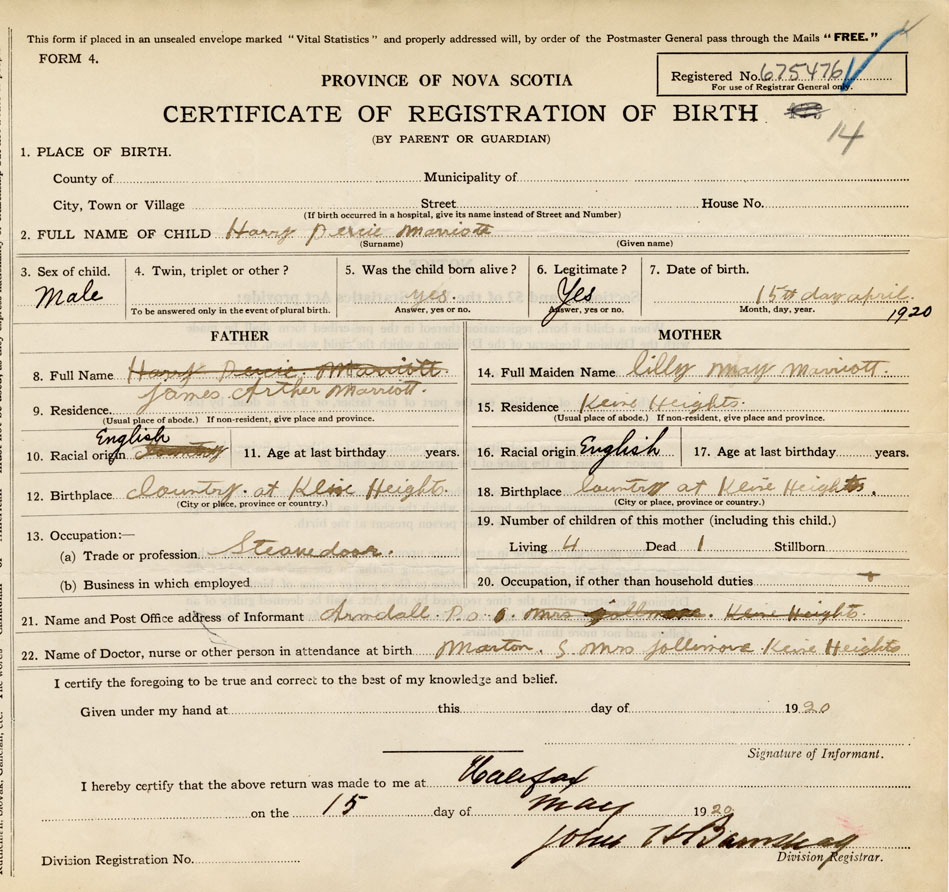 This form if placed in an unsealed envelope marked "Vital Statistics" and properly addressed will, by order of the Postmaster General pass through the Mails "FREE."
FORM 4.
Registered No. 675476
For use of Registrar General only.
PROVINCE OF NOVA SCOTIA
CERTIFICATE OF REGISTRATION OF BIRTH
14
(BY PARENT OR GUARDIAN)
1. PLACE OF BIRTH.
County of Municipality of
City, Town or Village Street House No.
(If birth occurred in a hospital, give its name instead of Street and Number)
2. FULL NAME OF CHILD Harry Percie Marriott
(Surname) (Given name)
3. Sex of child. 4. Twin, triplet or other? 5. Was the child born alive? 6. Legitimate? 7. Date of birth.
Male yes Yes 15th day april
To be answered only in the event of plural birth. Answer, yes or no. Answer, yes or no. Month, day, year. 1920
FATHER MOTHER
8. Full Name Harry Percie Marriott 14. Full Maiden Name lilly may Marriott.
James Arther Marriott.
9. Residence. 15. Residence Keine Heights.
(Usual place of abode.) If non-resident, give place and province. (Usual place of abode.) If non-resident, give place and province.
10. Racial origin English 11. Age at last birthday years. 16. Racial origin English 17. Age at last birthday years.
12. Birthplace Country. at Keine Heights. 18. Birthplace Country at Keine Heights.
(City or place, province or country.) (City or place, province or country.)
13. Occupation:— 19. Number of children of this mother (including this child.)
(a) Trade or profession Steavedoor. Living 4 Dead 1 Stillborn
(b) Business in which employed 20. Occupation, if other than household duties
21. Name and Post Office address of Informant Armdale. P.o. Mrs Keine Heights.
22. Name of Doctor, nurse or other person in attendance at birth Marton. Mrs Jollimore Keine Heights
I certify the foregoing to be true and correct to the best of my knowledge and belief.
Given under my hand at this day of 1920
Signature of Informant.
I hereby certify that the above return was made to me at Halifax
on the 15 day of May 1920
John H
Division Registration No. Division Registrar.